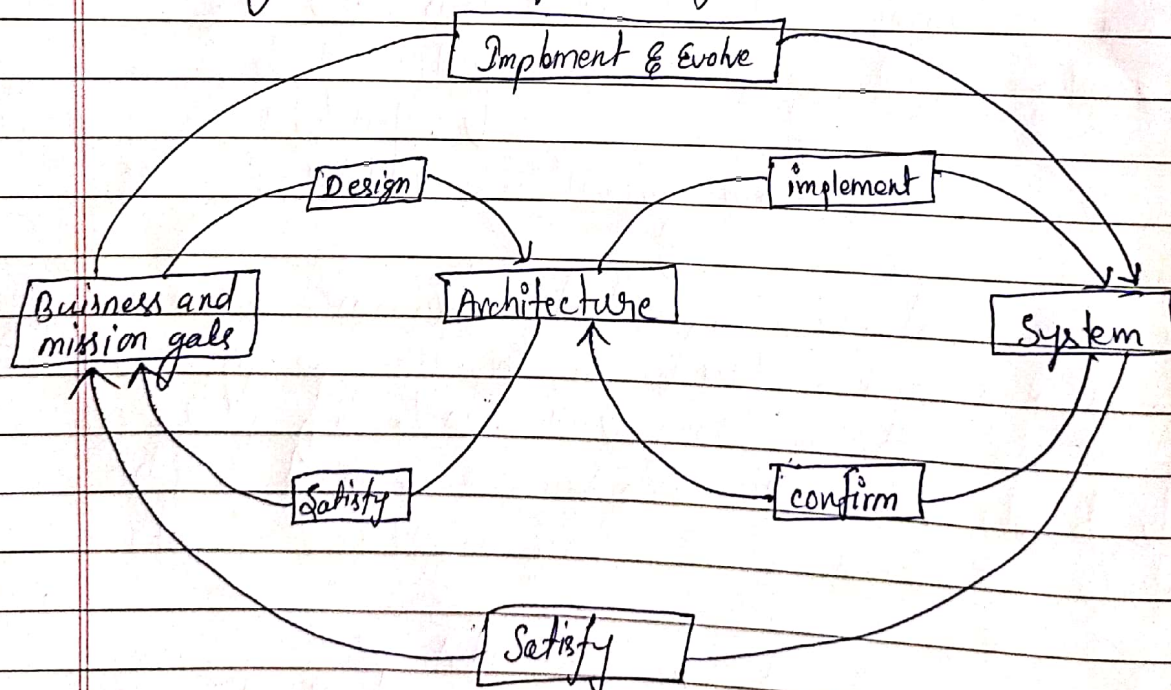 Implment & Evolve
Design
implement
Buisness and
mission gals
Architecture
System
Satisfy
confirm
Satisfy